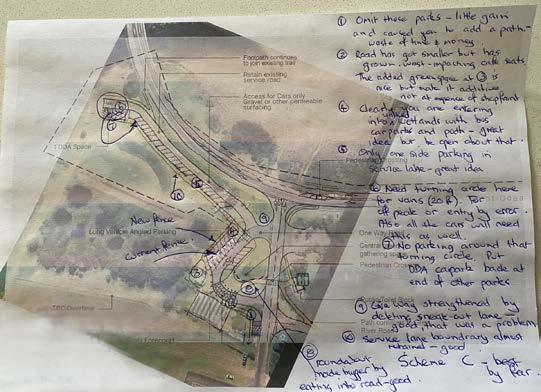 ① Omit these parks - little gain
and caused you to add a path -
waste of time & money
② Road has got smaller but has
grown west - impacting cafe seats.
The added greenspace at ③ is
nice but make it additive
not at expense of shopfront
④ Clearly you are entering
into wetlands with bus
carparks and path - great
idea but be open about that.
⑤ Only one side parking in
service lane - great idea
⑥ Need turning circle here
for vans (20 ft). For
off peak or entry by error.
Also all the cars will need
this as well.
⑦ No parking around that
turning circle. Put
DDA carparks back at
end of other parks
strengthened by
deleting sneak-out lane -
good that was a problem
⑩ Service lane boundary almost
retained - good
⑧ roundabout
made bigger by
eating into road - good.
Scheme C - best
by far.
Footpath continues
to join existing trail
Retain existing
service road
Access for Cars only
Gravel or other permeable
surfacing
DDA Space
Pedestrian Crossing
New fence
Long Vehicle Angled Parking
Current fence
One Way
Central
gathering space
Pedestrian Cross
Public Toilet Block
Path cont
River Road
Forecourt